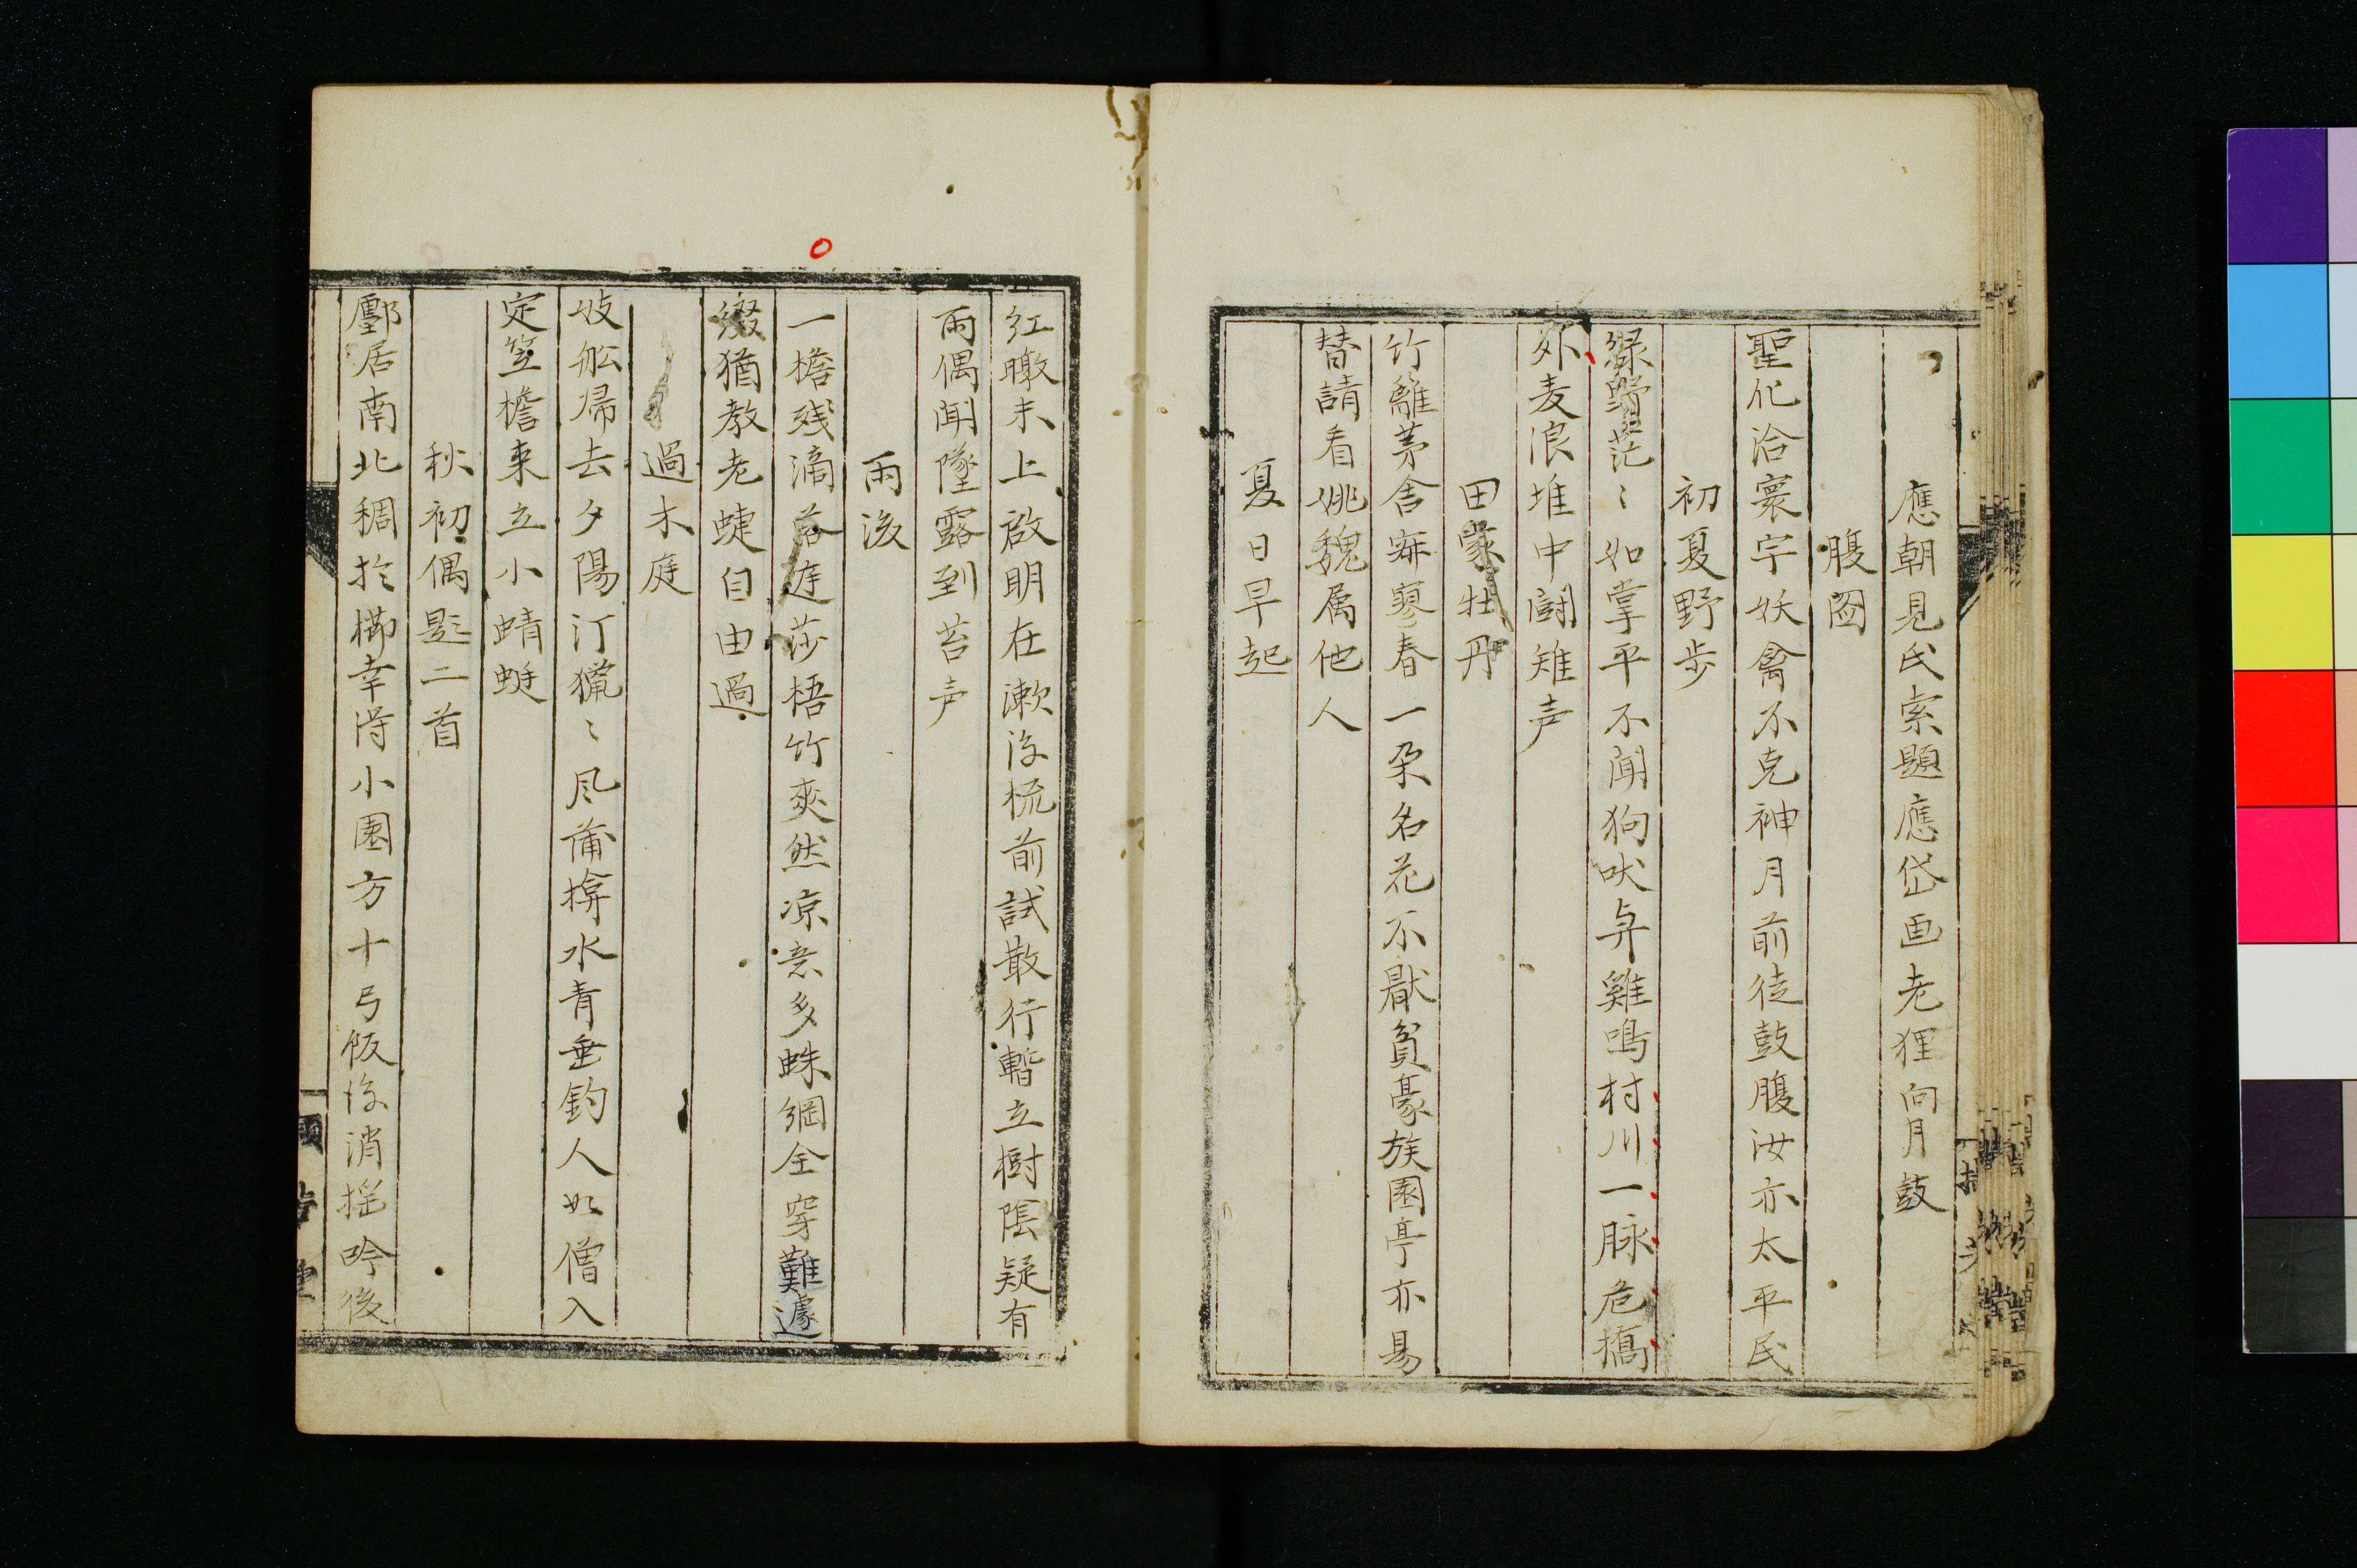 應朝見氏索題應岱画老狸向月鼓
腹図
聖化洽寰宇妖禽不克神月前徒鼓腹汝亦太平民
初夏野歩
緑野茫〻如掌平不聞狗吠与雞鳴村川一脉危橋
外麦浪堆中闘雉声
田家牡丹
竹籬茅舎寂寥春一朶名花不厭貧豪族園亭亦易
替請看姚魏属他人
夏日早起
紅暾未上啟明在漱後梳前試散行暫立樹陰疑有
雨偶聞墜露到苔声
雨後
一檐残滴落庭莎梧竹爽然凉意多蛛網全穿難遽
綴猶教老蜨自由過
過木庭
妓舩帰去夕陽汀猟〻風蒲擀水青垂釣人如僧入
定笠檐来立小蜻蜓
秋初偶題二首
鄽居南北稠於櫛幸得小園方十弓飯後消揺吟後